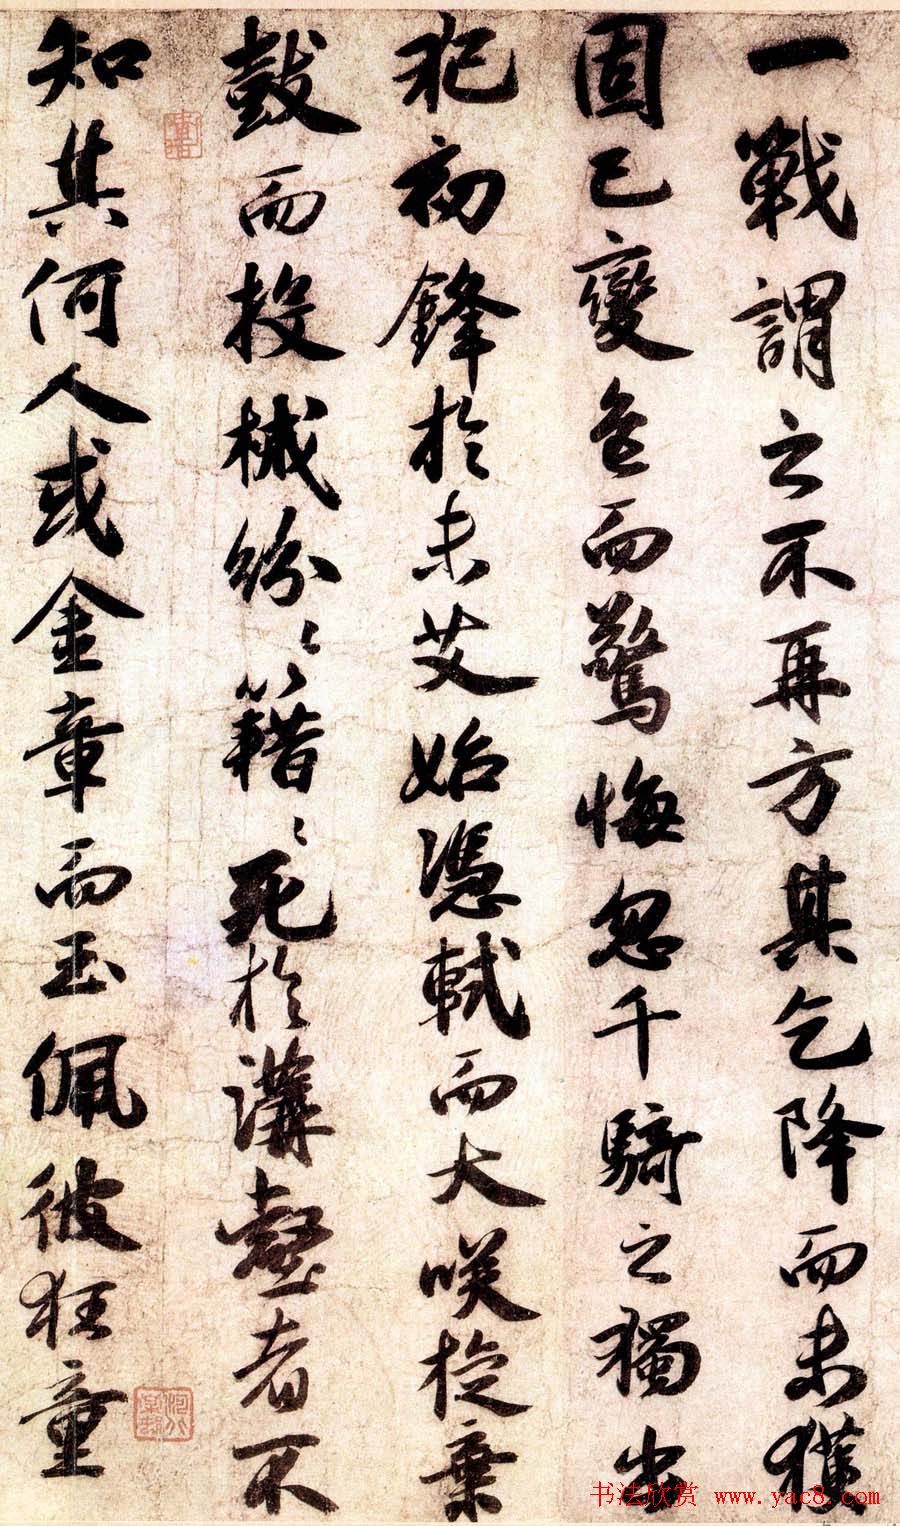 一戰謂之不再方其乞降而未獲
固已變色而驚悔忽千騎之獨出
犯初鋒於未艾始憑軾而大咲旋棄
鼓而投械紛〻籍〻死於溝壑者不
知其何人或金章而玉佩彼狂童
书法欣赏 www.yac8.com